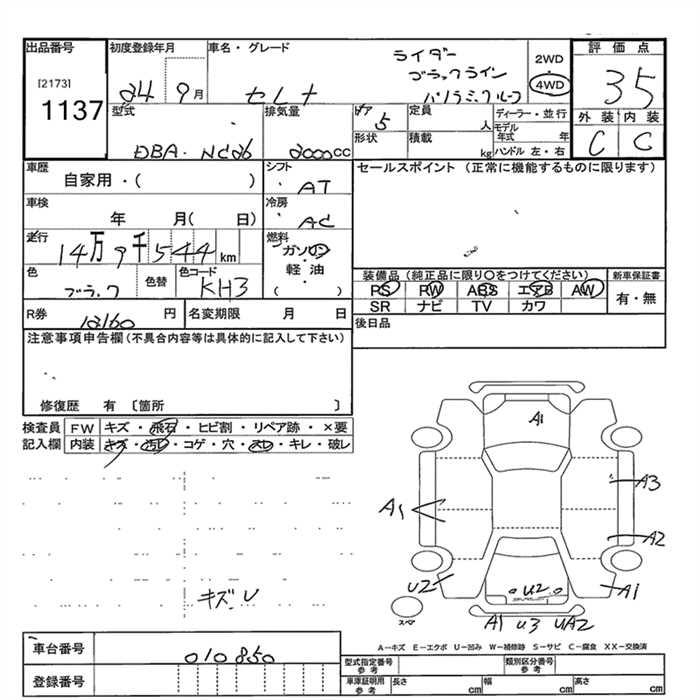 出品番号
[2173]
1137
初度登録年月
24 9月
車名・グレード
セレナ
ライダー
ブラックライン
パノラミックルーフ
2WD
4WD
評価点
35
外装 内装
C C
型式
DBA・NC26
排気量
2000cc
ドア
5
定員
人
ディーラー・並行
形状
積載
kg
モデル年式
年
ハンドル 左・右
車歴
自家用・( )
シフト
AT
セールスポイント (正常に機能するものに限ります)
車検
年 月( 日)
冷房
AC
走行
14万9千544km
燃料
ガソリン
軽油
( )
色
ブラック
色替
色コード
KH3
装備品(純正品に限り○をつけてください)
新車保証書
PS PW ABS エアB AW
SR ナビ TV カワ
有・無
R券
12160円
名変期限 月 日
後日品
注意事項申告欄(不具合内容等は具体的に記入して下さい)
修復歴 有 〔箇所 〕
検査員記入欄
FW キズ・飛石・ヒビ割・リペア跡・×要
内装 キズ・汚レ・コゲ・穴・スレ・キレ・破レ
キズ、U
A1
A1
A3
A2
U2
U2
A1
スペア
A1 U3 UA2
A−キズ E−エクボ U−凹み W−補修跡 S−サビ C−腐食 XX−交換済
車台番号
010850
登録番号
型式指定番号参考
類別区分番号参考
車庫証明用参考
長さ cm
幅 cm
高さ cm